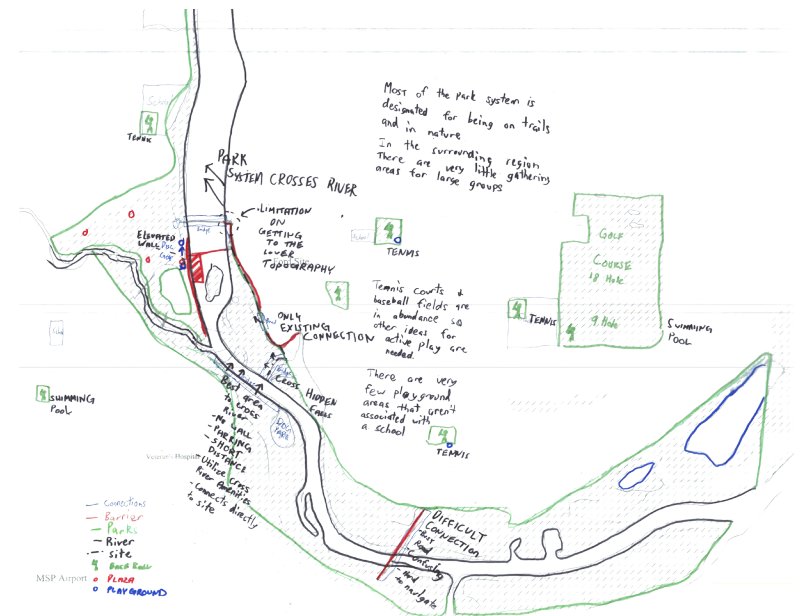 Most of the park system is
designated for being on trails
and in nature
In the surrounding region
There are very little gathering
areas for large groups
School
TENNIS
PARK
SYSTEM CROSSES RIVER
- LIMITATION
ON
GETTING
TO THE
LOWER
TOPOGRAPHY
ELEVATED
WALL
Bridge
School
TENNIS
GOLF
COURSE
18 Hole
9 Hole
SWIMMING
POOL
TENNIS
Tennis courts &
baseball fields are
in abundance so
other ideas for
active play are
needed.
ONLY
EXISTING
CONNECTION
There are very
few playground
areas that aren't
associated with
a school
TENNIS
CROSS
HIDDEN
FALLS
Best area
to cross
River
- NO WALL
- PARKING
- SHORT
DISTANCE
- Utilize cross
River Amenities
- Connects directly
to site
DOG
PARK
SWIMMING
POOL
Veteran's Hospital
DIFFICULT
CONNECTION
- Busy
Road
- Confusing
- Hard
to navigate
Connections
Barrier
Parks
River
Site
BACK BALL
PLAZA
PLAYGROUND
MSP Airport